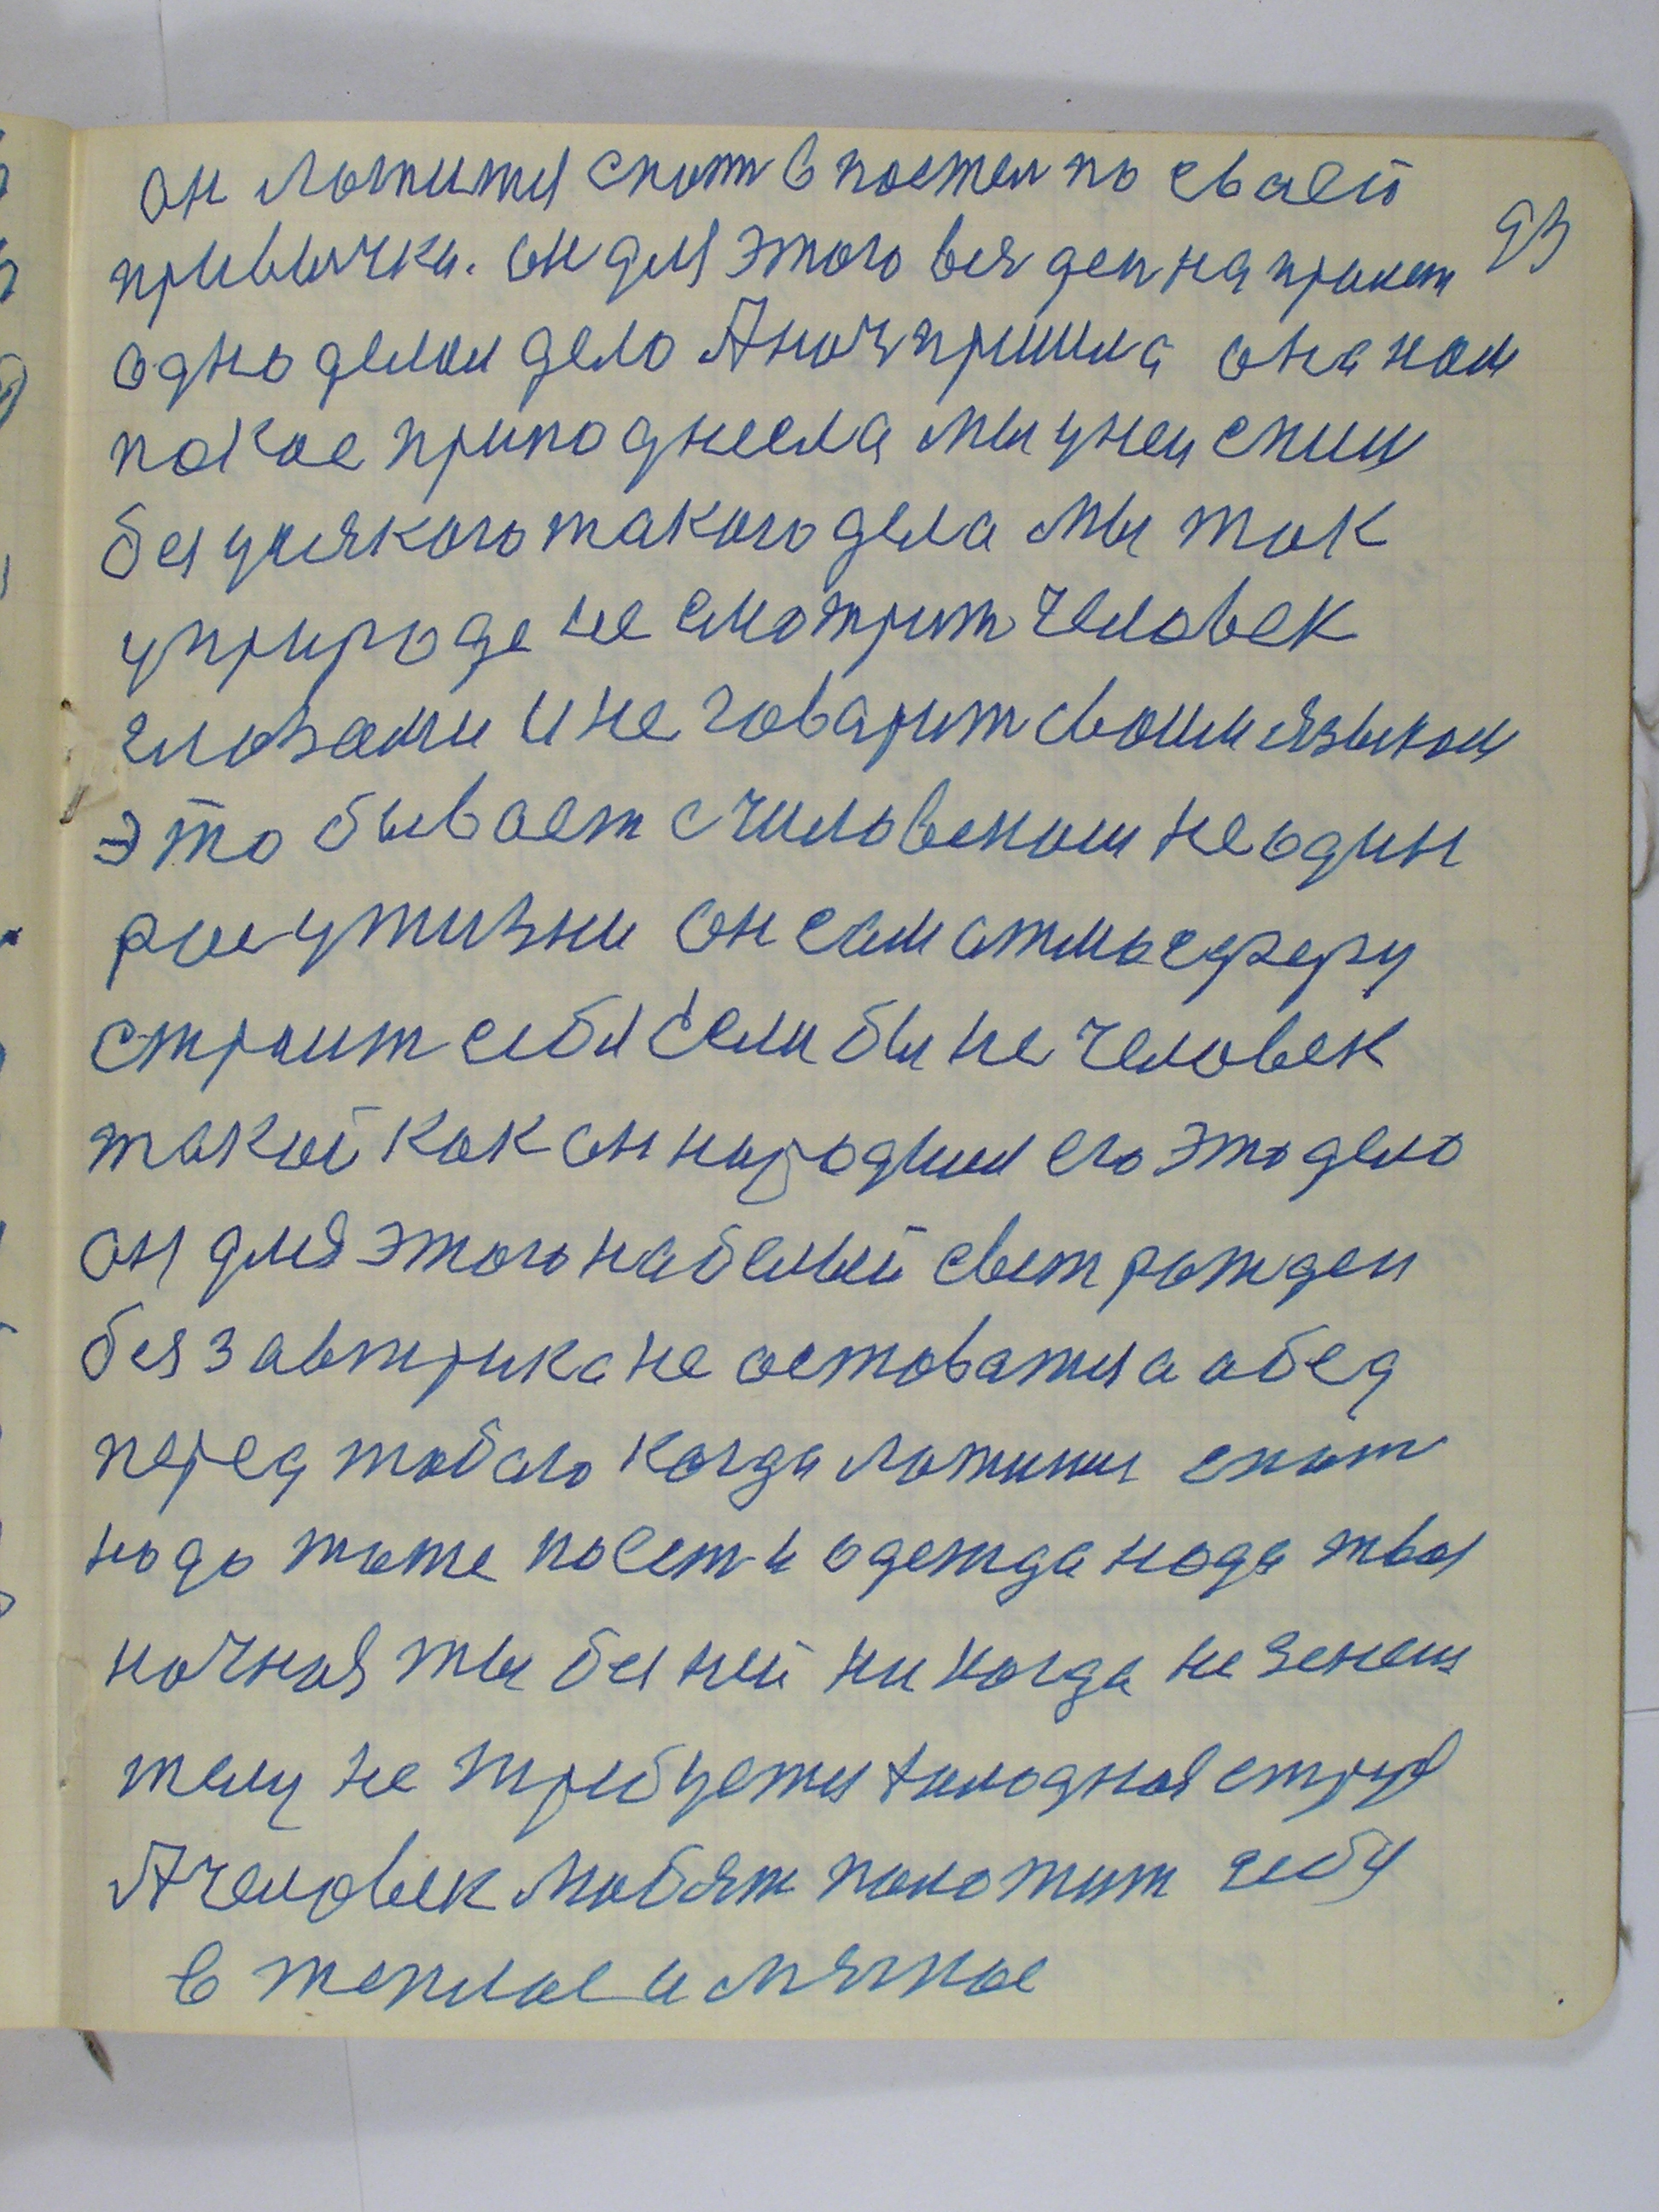 он ложится спат в постел по сваей
привычки. он для этого вея ден напролет 93
одно делал дело А ноч пришла она нам
покое приподнеела мы уней спим
без уеякого такого дела мы так
уприроде не смотрит человек
глозами и не говарит своим языком
это бывает с чиловеком не один
рас ужизни он сам атмосферу
строит себя Если бы не человек
такой как он народил его это дело
он для этого на белый свет рожден
без завтрика не оставатся а обед
перед тобою когда ложишся спат
надо тоже постел одежда нада твоя
ночная ты без ней ни когда не
телу не требуется холодная струя
А человек любят положит себя
в теплое и мягкое